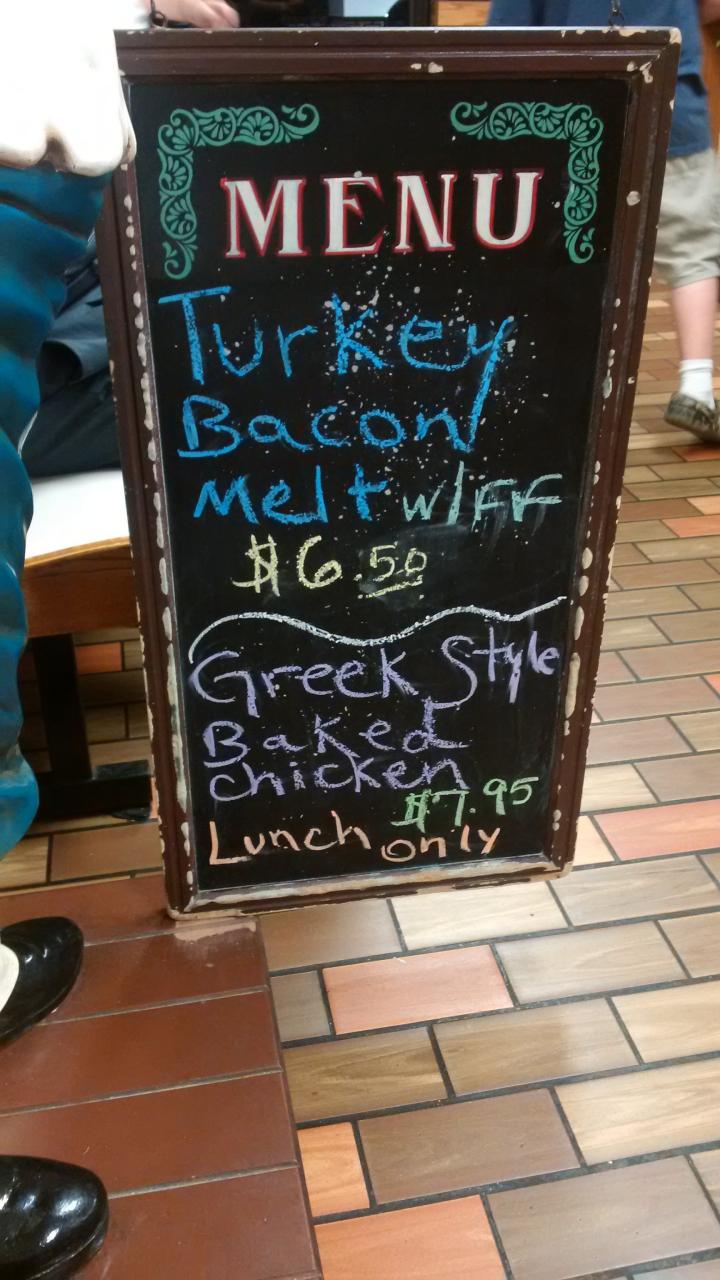 MENU
Turkey
Bacon
Melt w/FF
$6.50
Greek Style
Baked
chicken
$7.95
Lunch only